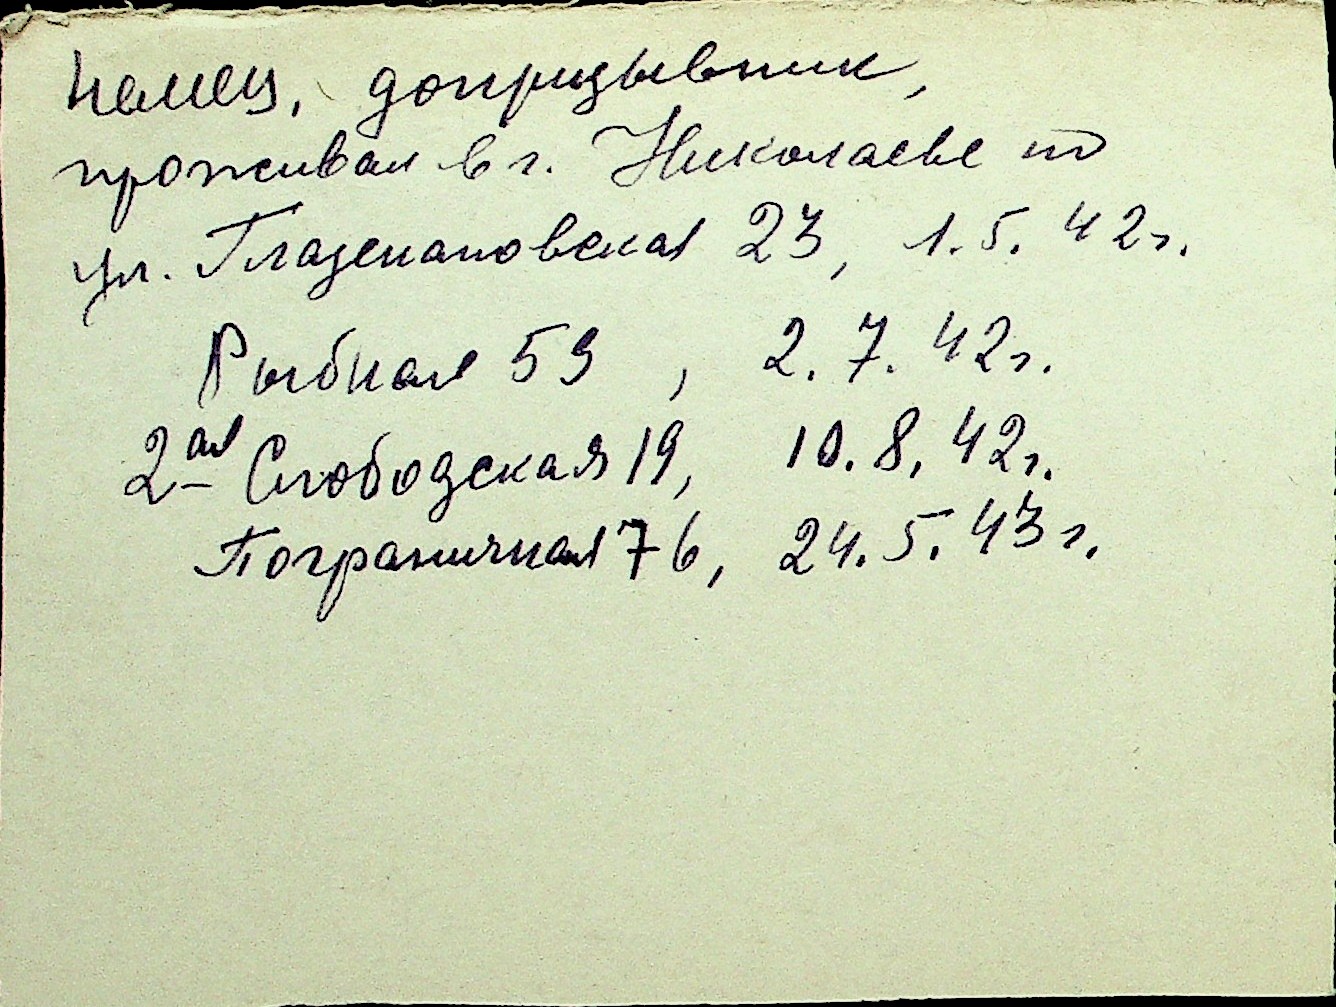 немец, допризывник,
проживал в г. Николаеве по
ул. Глазенаповская 23, 1.5.42г.
Рыбная 59, 2.7.42г.
2-ая Слободская 19, 10.8.42г.
Пограничная 76, 24.5.43г.